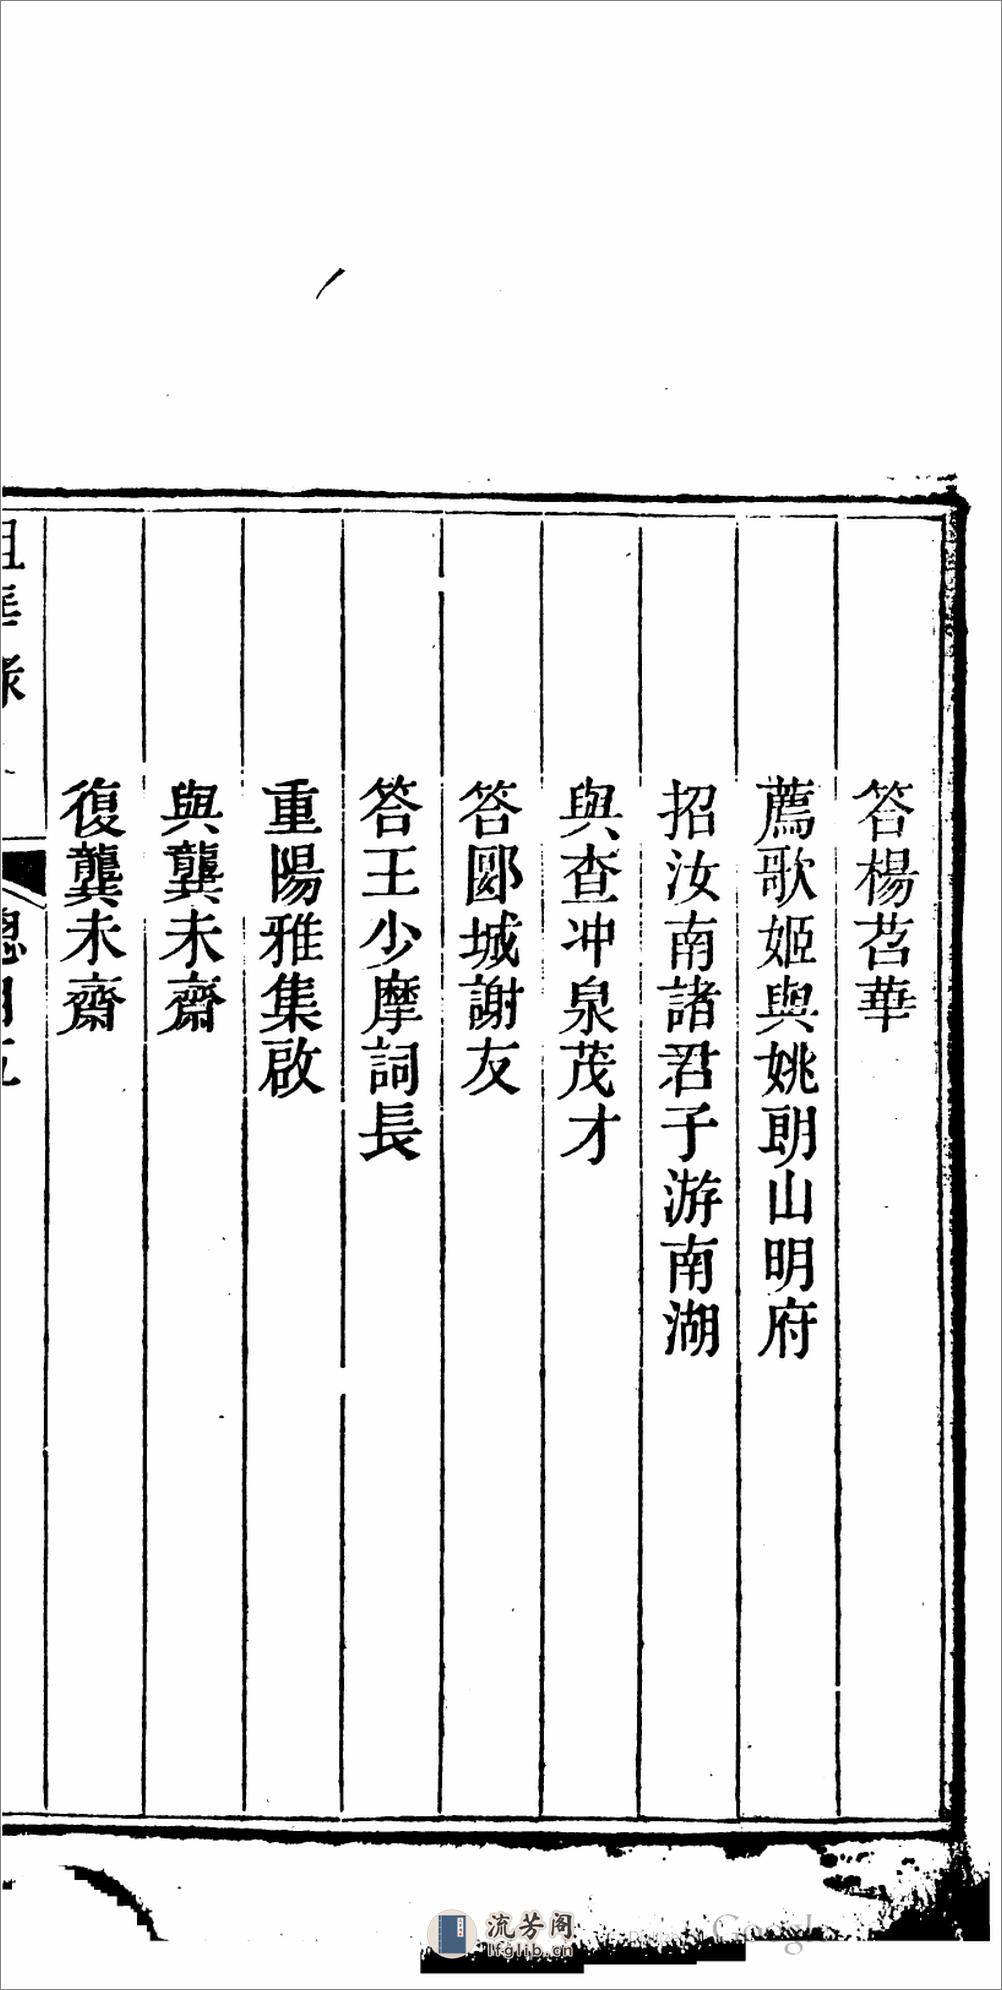 答楊苕華
薦歌姬與姚朗山明府
招汝南諸君子游南湖
與查冲泉茂才
答郾城謝友
答王少摩詞長
重陽雅集啟
與龔未齋
復龔未齋
流芳阁
lfglib.cn
Google